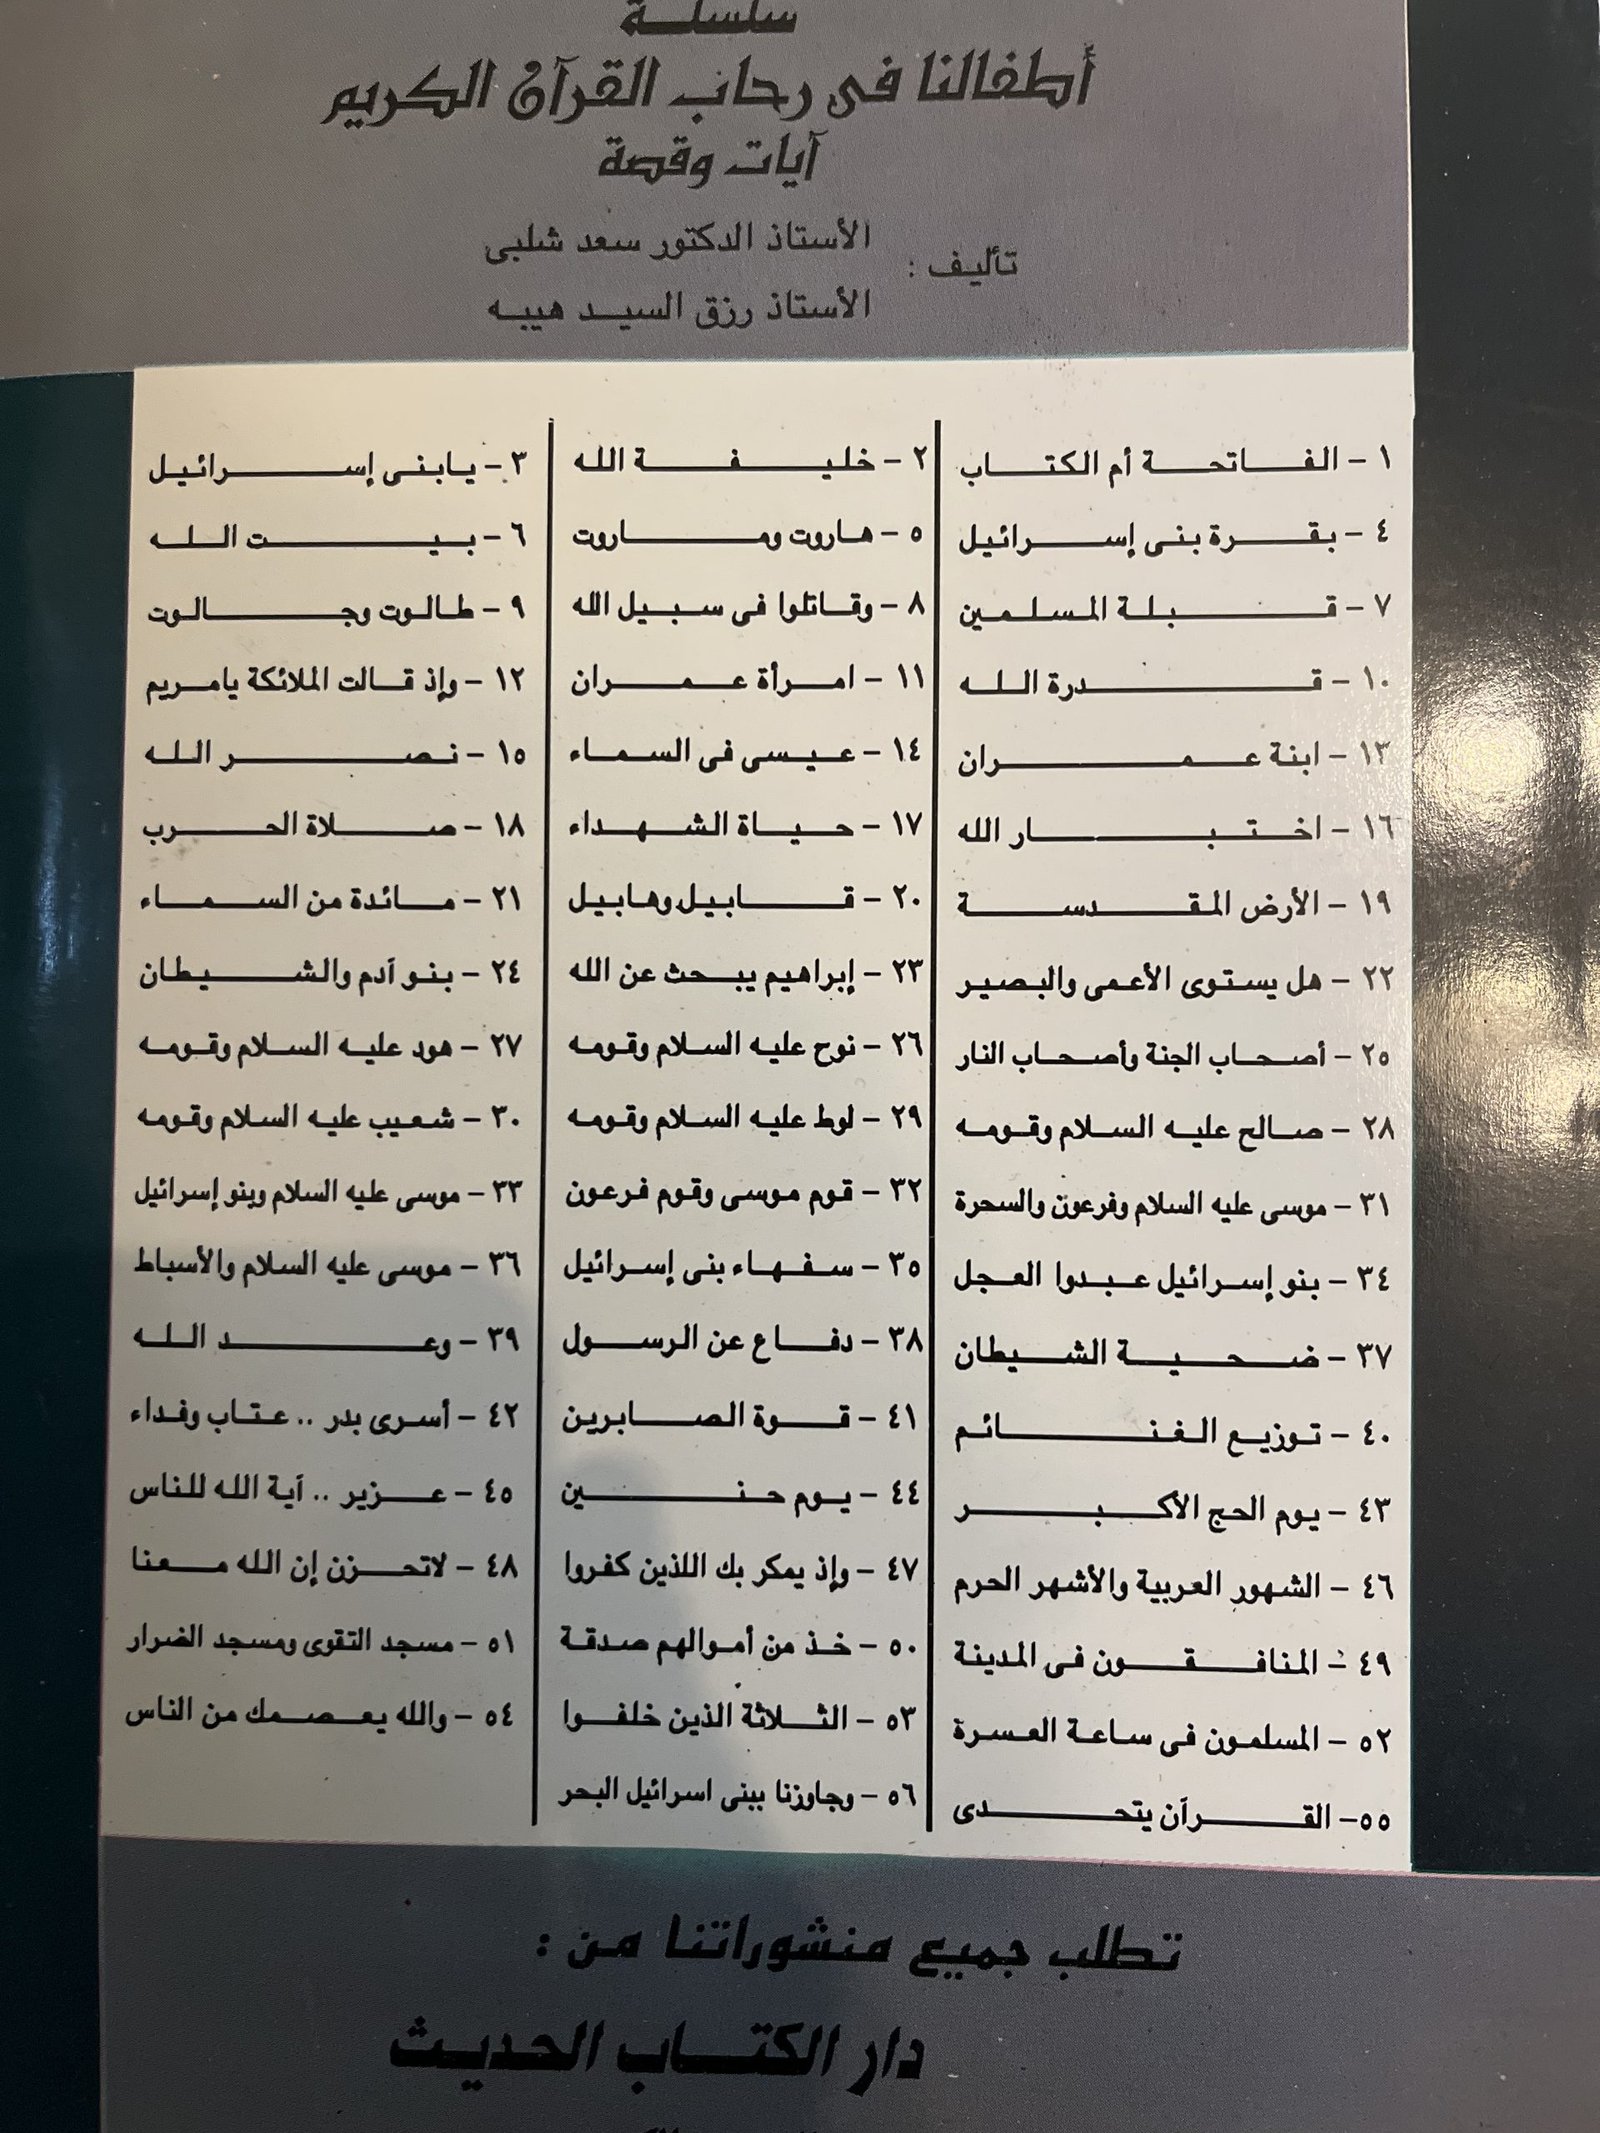 سلسلة
أطفالنا فى رحاب القرآن الكريم
آيات وقصة
تأليف :
الأستاذ الدكتور سعد شلبى
الأستاذ رزق السيد هيبه
١ - الفاتحة أم الكتاب
٢ - خليفة الله
٣ - يابنى إسرائيل
٤ - بقرة بنى إسرائيل
٥ - هاروت وماروت
٦ - بيت الله
٧ - قبلة المسلمين
٨ - وقاتلوا فى سبيل الله
٩ - طالوت وجالوت
١٠ - قدرة الله
١١ - امرأة عمران
١٢ - وإذ قالت الملائكة يامريم
١٣ - ابنة عمران
١٤ - عيسى فى السماء
١٥ - نصر الله
١٦ - اختبار الله
١٧ - حياة الشهداء
١٨ - صلاة الحرب
١٩ - الأرض المقدسة
٢٠ - قابيل وهابيل
٢١ - مائدة من السماء
٢٢ - هل يستوى الأعمى والبصير
٢٣ - إبراهيم يبحث عن الله
٢٤ - بنو آدم والشيطان
٢٥ - أصحاب الجنة وأصحاب النار
٢٦ - نوح عليه السلام وقومه
٢٧ - هود عليه السلام وقومه
٢٨ - صالح عليه السلام وقومه
٢٩ - لوط عليه السلام وقومه
٣٠ - شعيب عليه السلام وقومه
٣١ - موسى عليه السلام وفرعون والسحرة
٣٢ - قوم موسى وقوم فرعون
٣٣ - موسى عليه السلام وبنو إسرائيل
٣٤ - بنو إسرائيل عبدوا العجل
٣٥ - سفهاء بنى إسرائيل
٣٦ - موسى عليه السلام والأسباط
٣٧ - ضحية الشيطان
٣٨ - دفاع عن الرسول
٣٩ - وعد الله
٤٠ - توزيع الغنائم
٤١ - قوة الصابرين
٤٢ - أسرى بدر .. عتاب وفداء
٤٣ - يوم الحج الأكبر
٤٤ - يوم حنين
٤٥ - عزير .. آية الله للناس
٤٦ - الشهور العربية والأشهر الحرم
٤٧ - وإذ يمكر بك اللذين كفروا
٤٨ - لاتحزن إن الله معنا
٤٩ - المنافقون فى المدينة
٥٠ - خذ من أموالهم صدقة
٥١ - مسجد التقوى ومسجد الضرار
٥٢ - المسلمون فى ساعة العسرة
٥٣ - الثلاثة الذين خلفوا
٥٤ - والله يعصمك من الناس
٥٥- القرآن يتحدى
٥٦ - وجاوزنا ببنى اسرائيل البحر
تطلب جميع منشوراتنا من :
دار الكتاب الحديث